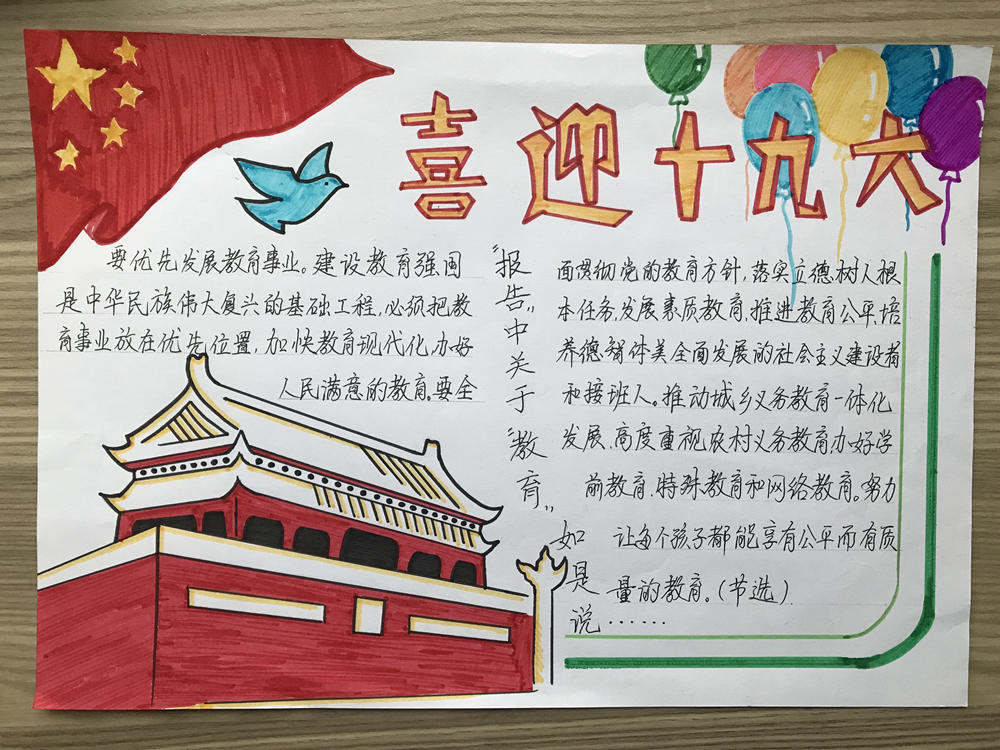 喜迎十九大
"报告"中关于"教育"如是说……
要优先发展教育事业。建设教育强国
是中华民族伟大复兴的基础工程,必须把教
育事业放在优先位置,加快教育现代化,办好
人民满意的教育。要全
面贯彻党的教育方针,落实立德树人根
本任务,发展素质教育,推进教育公平,培
养德智体美全面发展的社会主义建设者
和接班人。推动城乡义务教育一体化
发展,高度重视农村义务教育,办好学
前教育、特殊教育和网络教育。努力
让每个孩子都能享有公平而有质
量的教育。(节选)